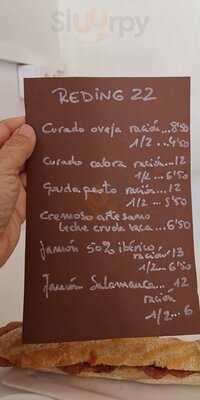 Sluurpy
REDING 22
Curado oveja ración...8'50
1/2...4'50
Curado cabra ración...12
1/2...6'50
Gouda pesto ración...12
1/2...5'50
Cremoso artesano
leche cruda vaca...6'50
Jamón 50% ibérico
ración 13
1/2...6'50
Jamón Salamanca...12
ración
1/2...6